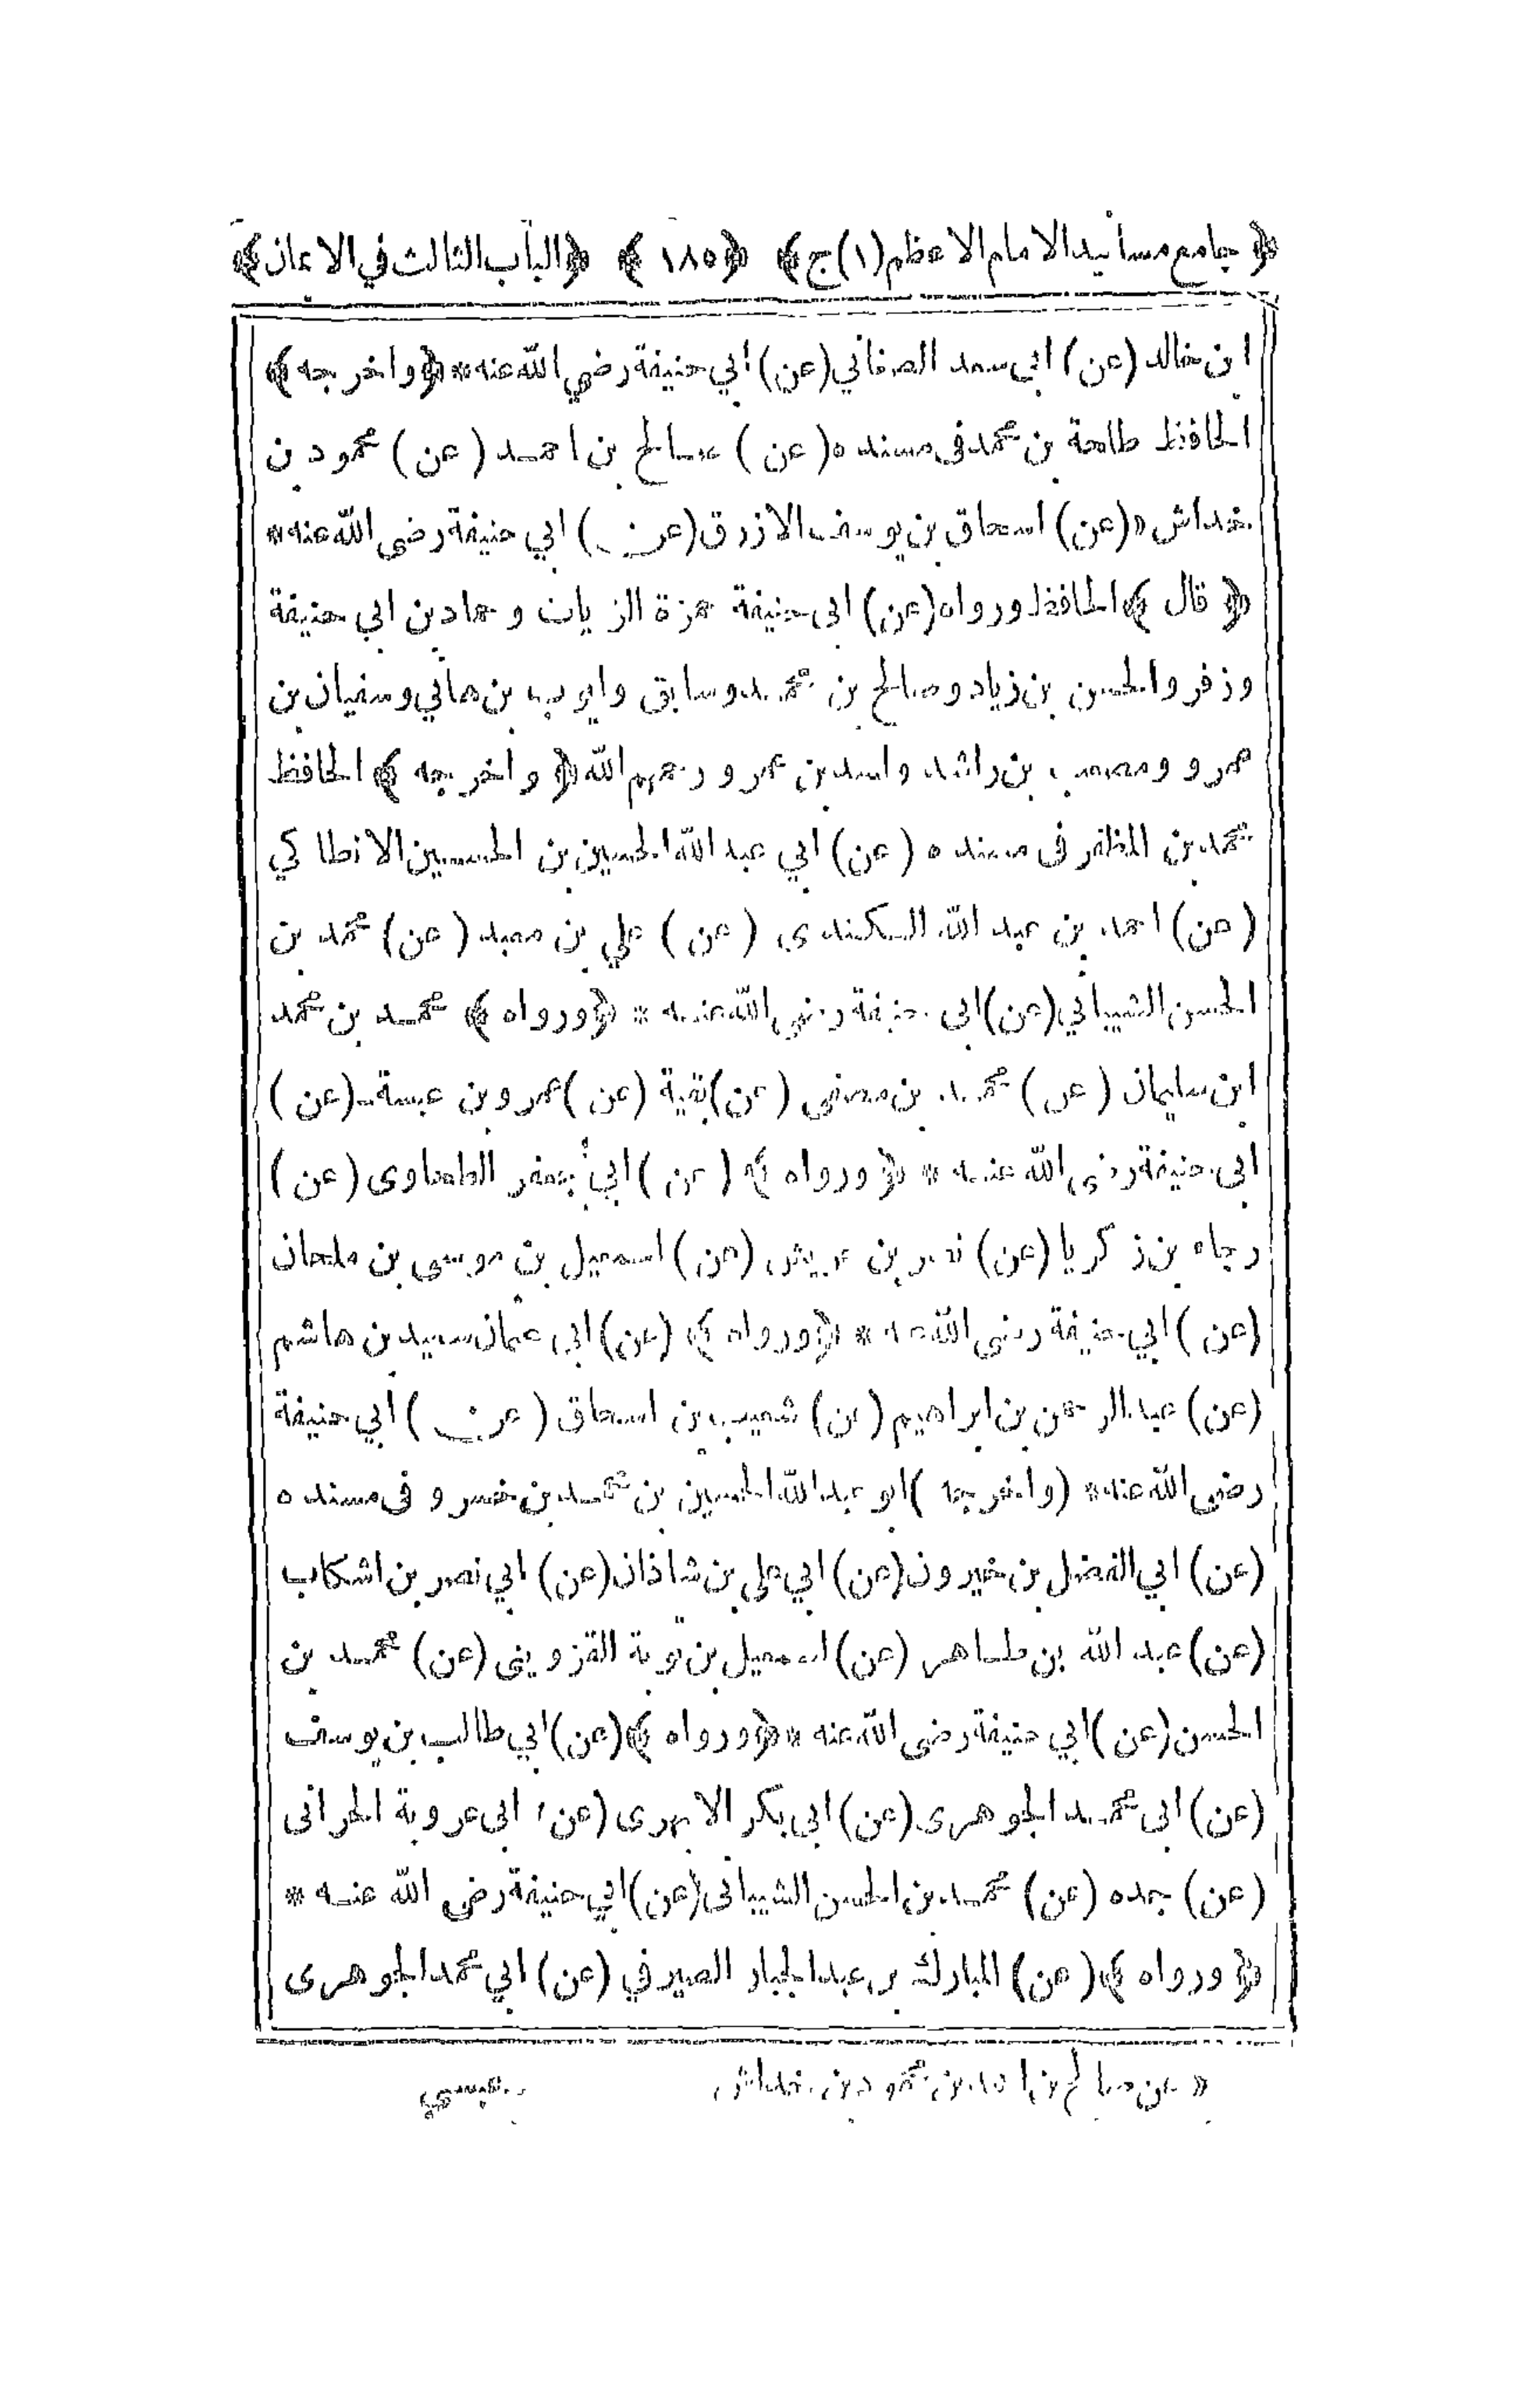 ﴿ جامع مسانيد الامام الاعظم (١) ج ﴾ ﴿ ١٨٥ ﴾ ﴿ الباب الثالث في الايمان ﴾
ابن خالد (عن) ابى سعد الصغاني (عن) ابي حنيفة رضي الله عنه * ﴿ واخرجه ﴾
الحافظ طلحة بن محمد فى مسنده (عن) صالح بن احمد (عن) محمود بن
خداش « (عن) اسحاق بن يوسف الازرق (عن) ابي حنيفة رضى الله عنه *
﴿ قال ﴾ الحافظ ورواه (عن) ابى حنيفة حمزة الزيات و حماد بن ابي حنيفة
وزفر والحسن بن زياد وصالح بن محمد وسابق وايوب بن هاني وسفيان بن
عمرو ومصعب بن راشد واسد بن عمرو رحمهم الله ﴿ واخرجه ﴾ الحافظ
محمد بن المظفر فى مسنده (عن) ابي عبد الله الحسين بن الحسين الانطاكي
(عن) احمد بن عبد الله الكندى (عن) علي بن معبد (عن) محمد بن
الحسن الشيباني (عن) ابى حنيفة رضي الله عنه * ﴿ ورواه ﴾ محمد بن محمد
ابن سليمان (عن) محمد بن مصفى (عن) بقية (عن) عمرو بن عبسة (عن)
ابى حنيفة رضى الله عنه * ﴿ ورواه ﴾ (عن) ابي جعفر الطحاوى (عن)
رجاه بن زكريا (عن) نصر بن حريش (عن) اسمعيل بن موسى بن ملحان
(عن) ابي حنيفة رضى الله عنه * ﴿ ورواه ﴾ (عن) ابى عثمان سعيد بن هاشم
(عن) عبد الرحمن بن ابراهيم (عن) شعيب بن اسحاق (عن) ابي حنيفة
رضى الله عنه * (واخرجه) ابو عبد الله الحسين بن محمد بن خسرو فى مسنده
(عن) ابي الفضل بن خيرون (عن) ابي على بن شاذان (عن) ابي نصر بن اشكاب
(عن) عبد الله بن طاهر (عن) اسمعيل بن توبة القزوينى (عن) محمد بن
الحسن (عن) ابي حنيفة رضى الله عنه * ﴿ ورواه ﴾ (عن) ابي طالب بن يوسف
(عن) ابى محمد الجوهرى (عن) ابى بكر الابهرى (عن) ابى عروبة الحرانى
(عن) جده (عن) محمد بن الحسن الشيبانى (عن) ابي حنيفة رضي الله عنه *
﴿ ورواه ﴾ (عن) المبارك بن عبد الجبار الصيرفي (عن) ابي محمد الجوهرى
« عن صالح بن احمد بن محمود بن خداش